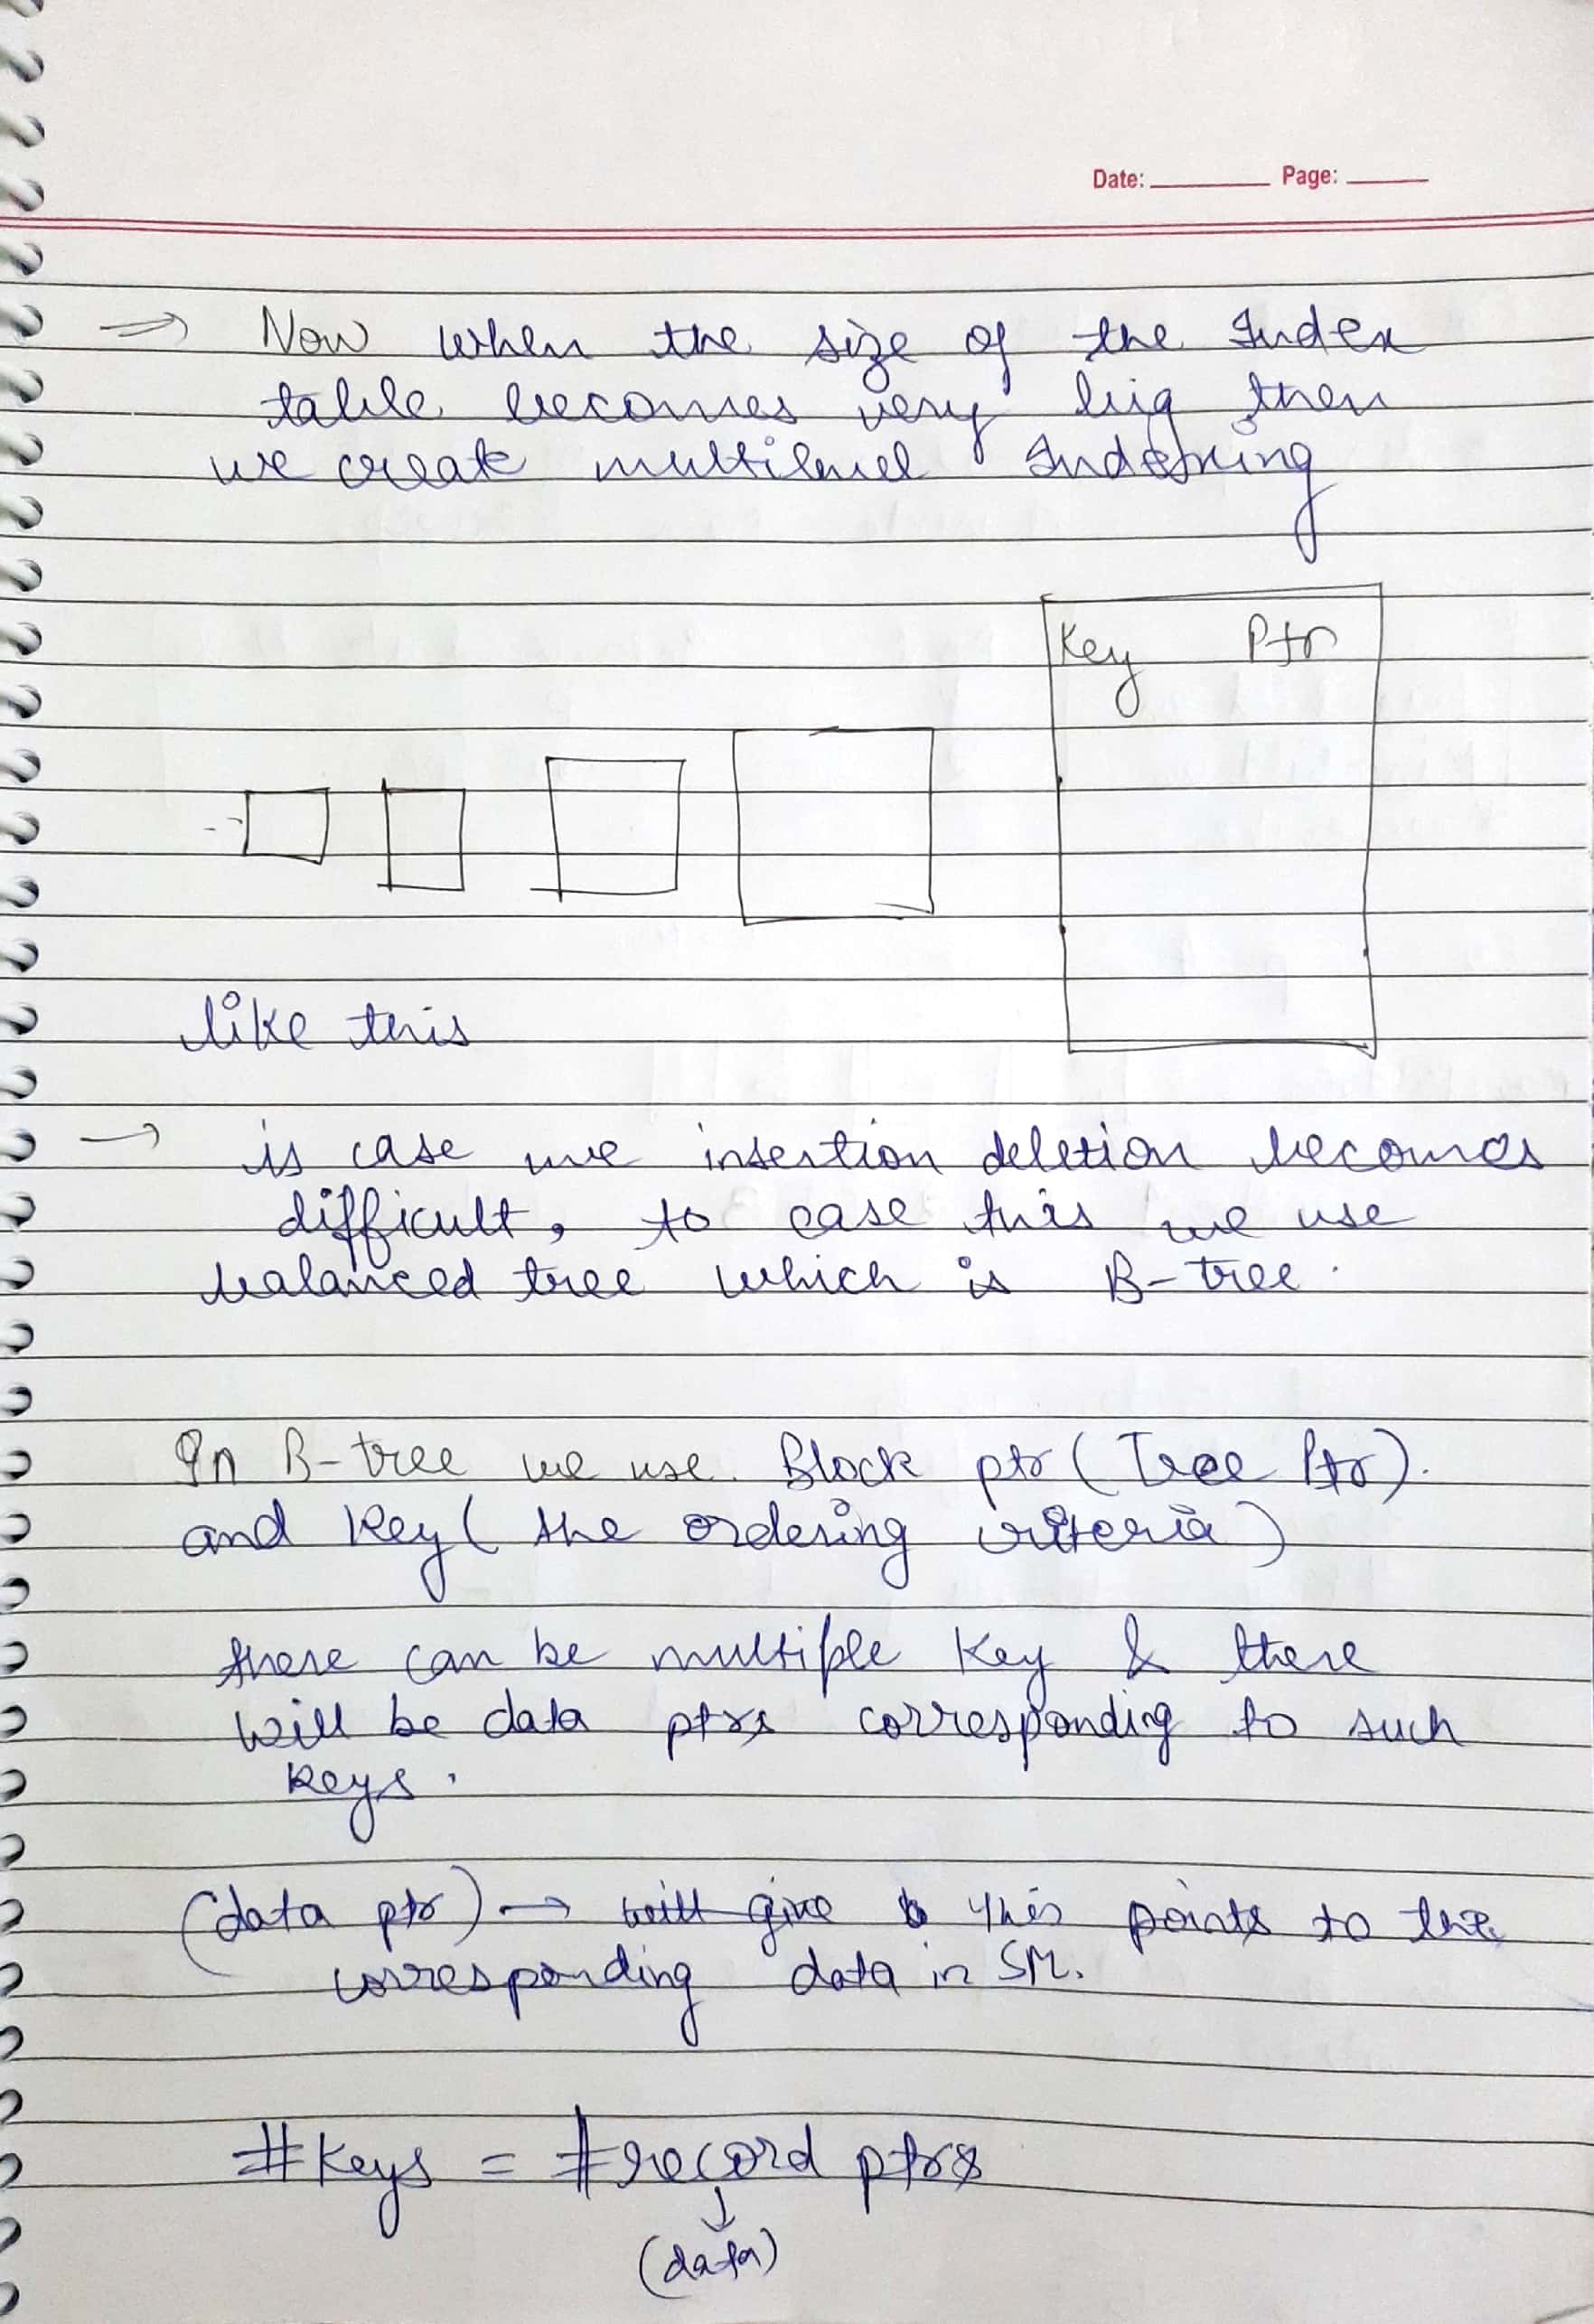 Date: Page:
⇒ Now when the size of the Index
table becomes very big then
we create multilevel Indexing
Key Ptr
like this
→ is case we insertion deletion becomes
difficult, to ease this we use
balanced tree which is B-tree.
In B-tree we use. Block ptr (Tree Ptr).
and Key (the ordering criteria)
there can be multiple Key & there
will be data ptrs corresponding to such
keys.
(data ptr) → will give this points to the
corresponding data in SM.
#Keys = #record ptrs
↓
(data)